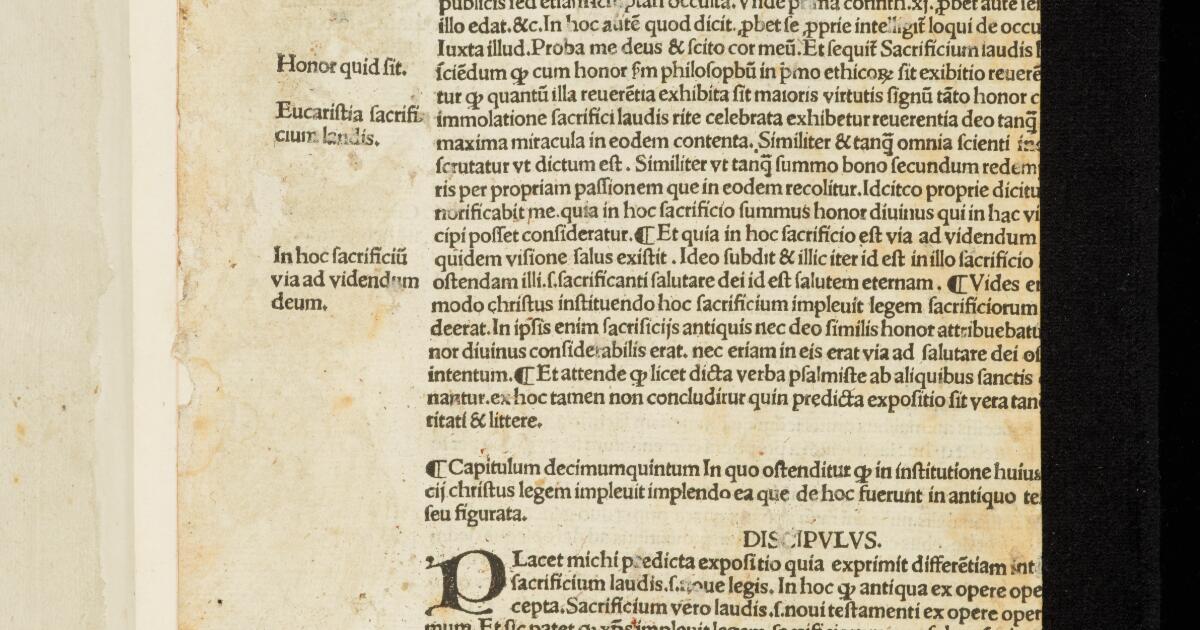 illo edat.&c.In hoc autē quod dicit.ꝓbet se ꝓprie intelligit̄ loqui de occu
Honor quid sit.
Iuxta illud.Proba me deus & scito cor meū.Et sequit̄ Sacrificium laudis
sciēdum ꝙ cum honor ſm philosopbū in pmo ethicoꝝ sit exibitio reuerē
tur ꝙ quantū illa reuerētia exhibita sit maioris virtutis signū tāto honor
Eucaristia sacrifi
cium laudis.
immolatione sacrifici laudis rite celebrata exhibetur reuerentia deo tanq̄
maxima miracula in eodem contenta. Similiter & tanq̄ omnia scienti
scrutatur vt dictum est . Similiter vt tanq̄ summo bono secundum redem
ris per propriam passionem que in eodem recolitur.Idcitco proprie dicitu
norificabit me.quia in hoc sacrificio summus honor diuinus qui in hac vi
cipi posset consideratur.¶Et quia in hoc sacrificio est via ad videndum
In hoc sacrificiū
via ad videndum
deum.
quidem visione salus existit . Ideo subdit & illic iter id est in illo sacrificio
ostendam illi.s.sacrificanti salutare dei id est salutem eternam . ¶Vides
modo christus instituendo hoc sacrificium impleuit legem sacrificiorum
deerat.In ipsis enim sacrificijs antiquis nec deo similis honor attribuebatu
nor diuinus considerabilis erat. nec eriam in eis erat via ad salutare dei
intentum.¶Et attende ꝙ licet dicta verba psalmiste ab aliquibus sanctis
nantur.ex hoc tamen non concluditur quin predicta expositio sit vera tan
ritati & littere.
¶Capitulum decimumquintum In quo ostenditur ꝙ in institutione huius
cij christus legem impleuit implendo ea que de hoc fuerunt in antiquo te
seu figurata.
DISCIPVLVS.
PLacet michi predicta expositio quia exprimit differētiam int
sacrificium laudis.s.noue legis. In hoc ꝙ antiqua ex opere ope
cepta.Sacrificium vero laudis.s.noui testamenti ex opere oper